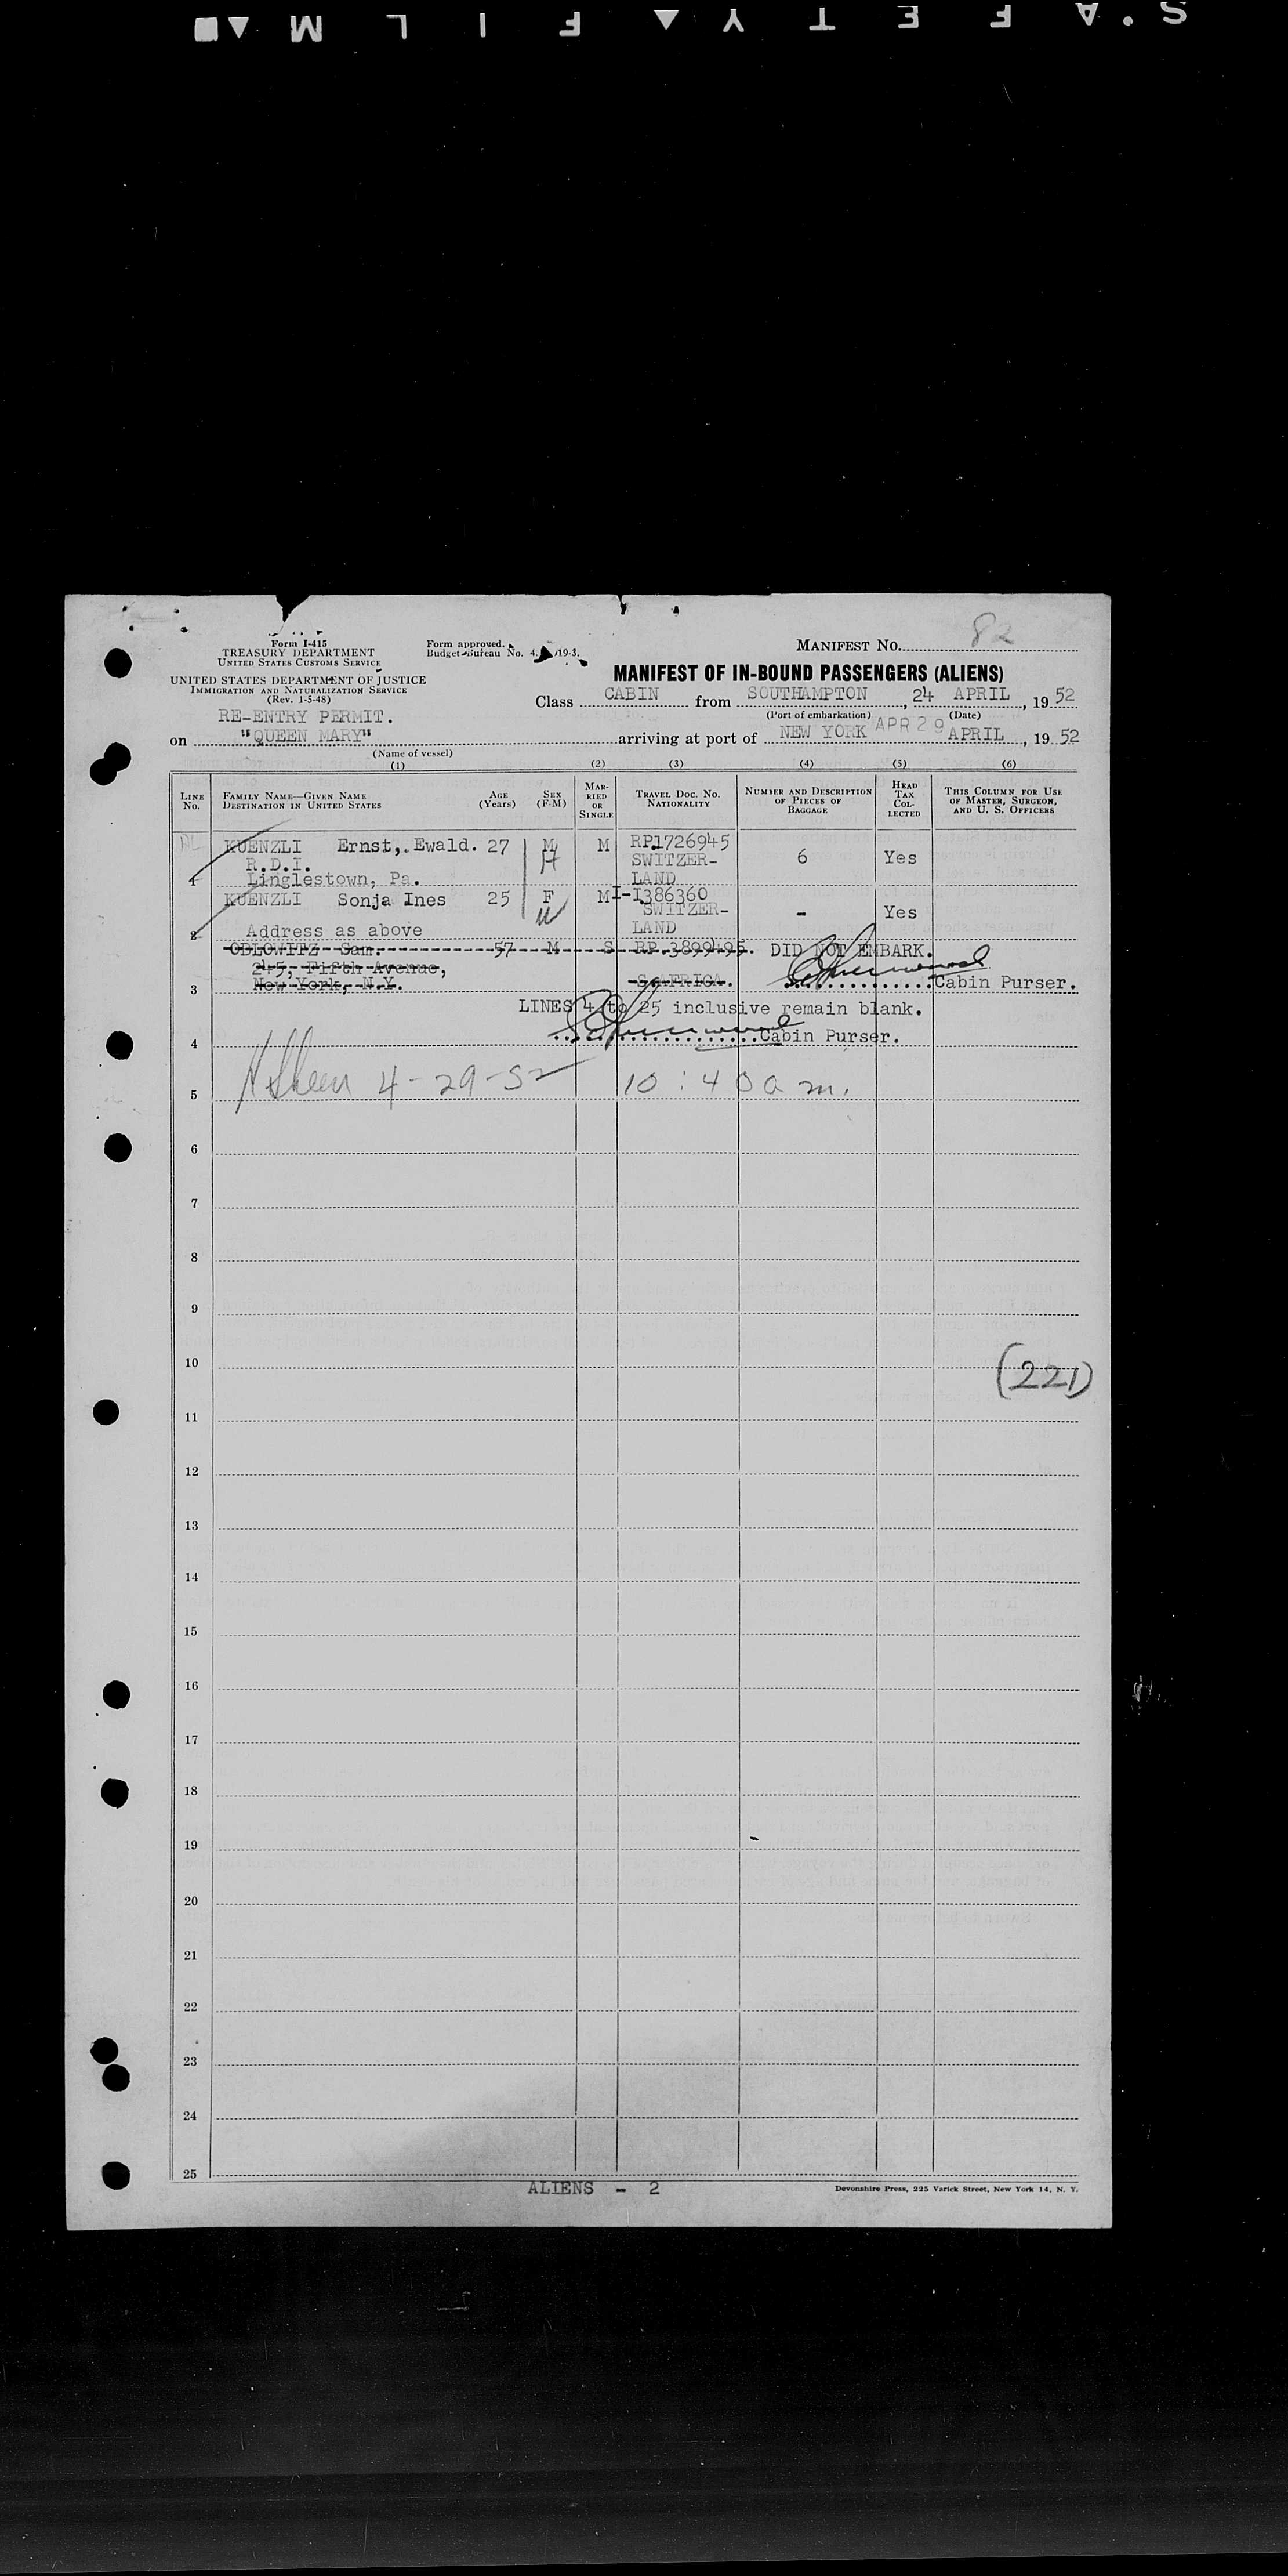 SAFETY FILM
82
Form I-415
TREASURY DEPARTMENT
UNITED STATES CUSTOMS SERVICE
Form approved.
Budget Bureau No. 4. 19-3.
MANIFEST No.
UNITED STATES DEPARTMENT OF JUSTICE
IMMIGRATION AND NATURALIZATION SERVICE
(Rev. 1-5-48)
MANIFEST OF IN-BOUND PASSENGERS (ALIENS)
Class CABIN from SOUTHAMPTON, 24 APRIL, 1952
(Port of embarkation) (Date)
RE-ENTRY PERMIT.
on "QUEEN MARY" arriving at port of NEW YORK APR 29 APRIL, 1952
(Name of vessel)
(1) (2) (3) (4) (5) (6)
LINE No. FAMILY NAME—GIVEN NAME DESTINATION IN UNITED STATES AGE (Years) SEX (F-M) MARRIED OR SINGLE TRAVEL DOC. No. NATIONALITY NUMBER AND DESCRIPTION OF PIECES OF BAGGAGE HEAD TAX COLLECTED THIS COLUMN FOR USE OF MASTER, SURGEON, AND U. S. OFFICERS
KUENZLI Ernst, Ewald. 27 M M RP1726945
R.D.I. SWITZER- 6 Yes
1 Linglestown, Pa. LAND
KUENZLI Sonja Ines 25 F M I-I386360
SWITZER- - Yes
2 Address as above LAND
ODLOWITZ Sam. 57 M S RP.3899495. DID NOT EMBARK.
245, Fifth Avenue,
3 New York, N.Y. S.AFRICA. Cabin Purser.
LINES 4 to 25 inclusive remain blank.
4 Cabin Purser.
5 4-29-52 10:40 a m.
6
7
8
9
10
(221)
11
12
13
14
15
16
17
18
19
20
21
22
23
24
25
ALIENS - 2
Devonshire Press, 225 Varick Street, New York 14, N. Y.